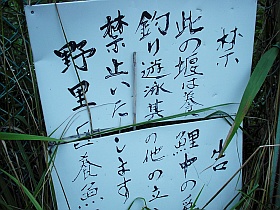 禁告
此の堰は養鯉中の為
釣り遊泳其の他の立
禁止いたします
野里区養魚